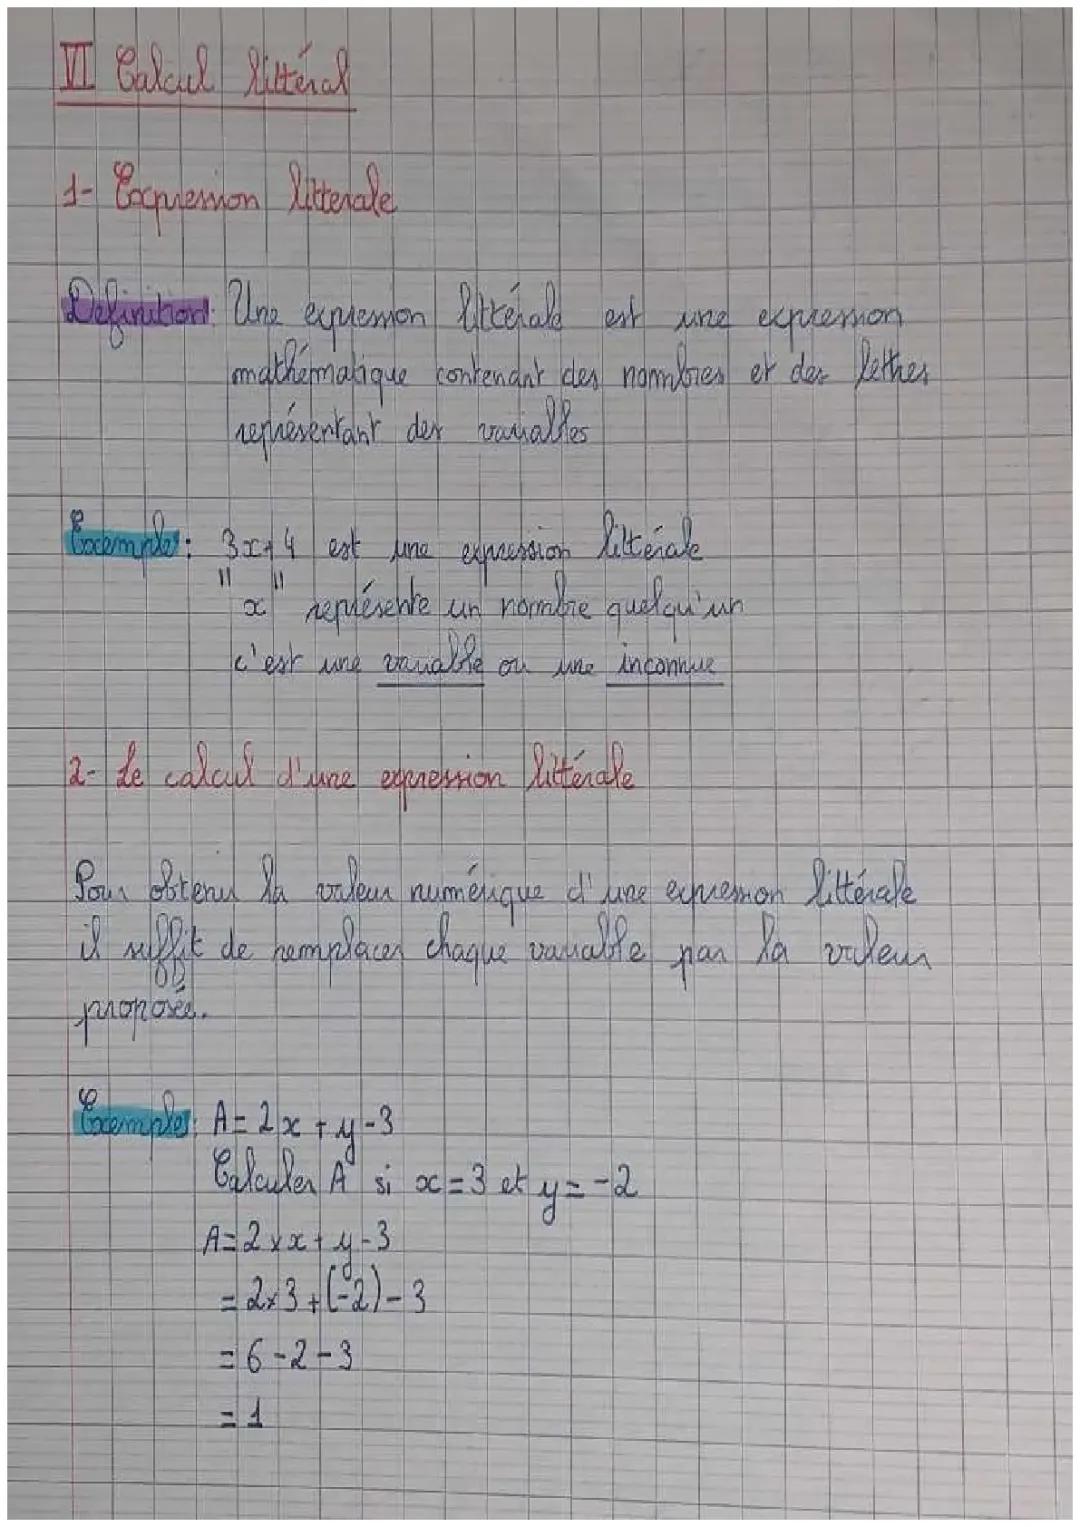 VI Calcul littéral
1- Expression litterale
Définition: Une expression littérale est une expression
mathématique contenant des nombres et des lettres
représentant des variables
Exemple: 3x+4 est une expression littérale
"x" représente un nombre quelqu'un
c'est une variable ou une inconnue
2- Le calcul d'une expression littérale
Pour obtenir la valeur numérique d'une expression littérale
il suffit de remplacer chaque variable par la valeur
proposée.
Exemple: A= 2x+y-3
Calculer A si x=3 et y=-2
A=2×x+y-3
=2×3+(-2)-3
=6-2-3
=1